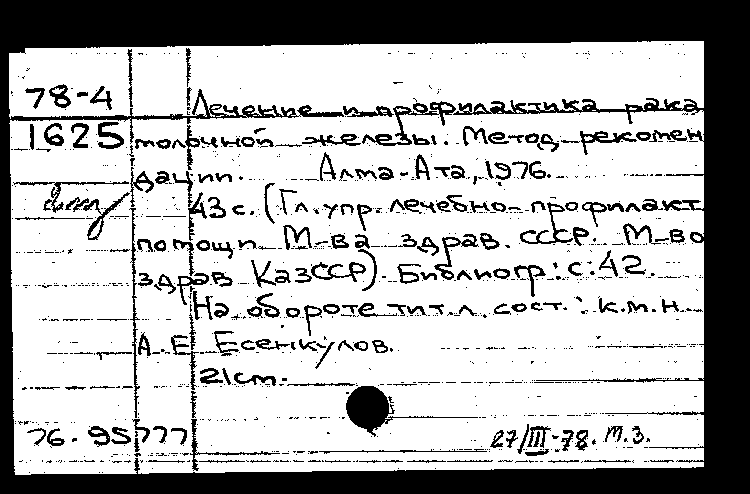 78-4 Лечение и профилактика рака
1625 молочной железы. Метод. рекомен
дации. Алма-Ата, 1976.
43 с. (Гл. упр. лечебно-профилакт.
помощи М-ва здрав. СССР. М-во
здрав КазССР). Библиогр: с. 42.
На обороте тит. л. сост.: к.м.н.
А.Е Есенкулов.
21 cm.
76-95777 27/III-78. т.з.